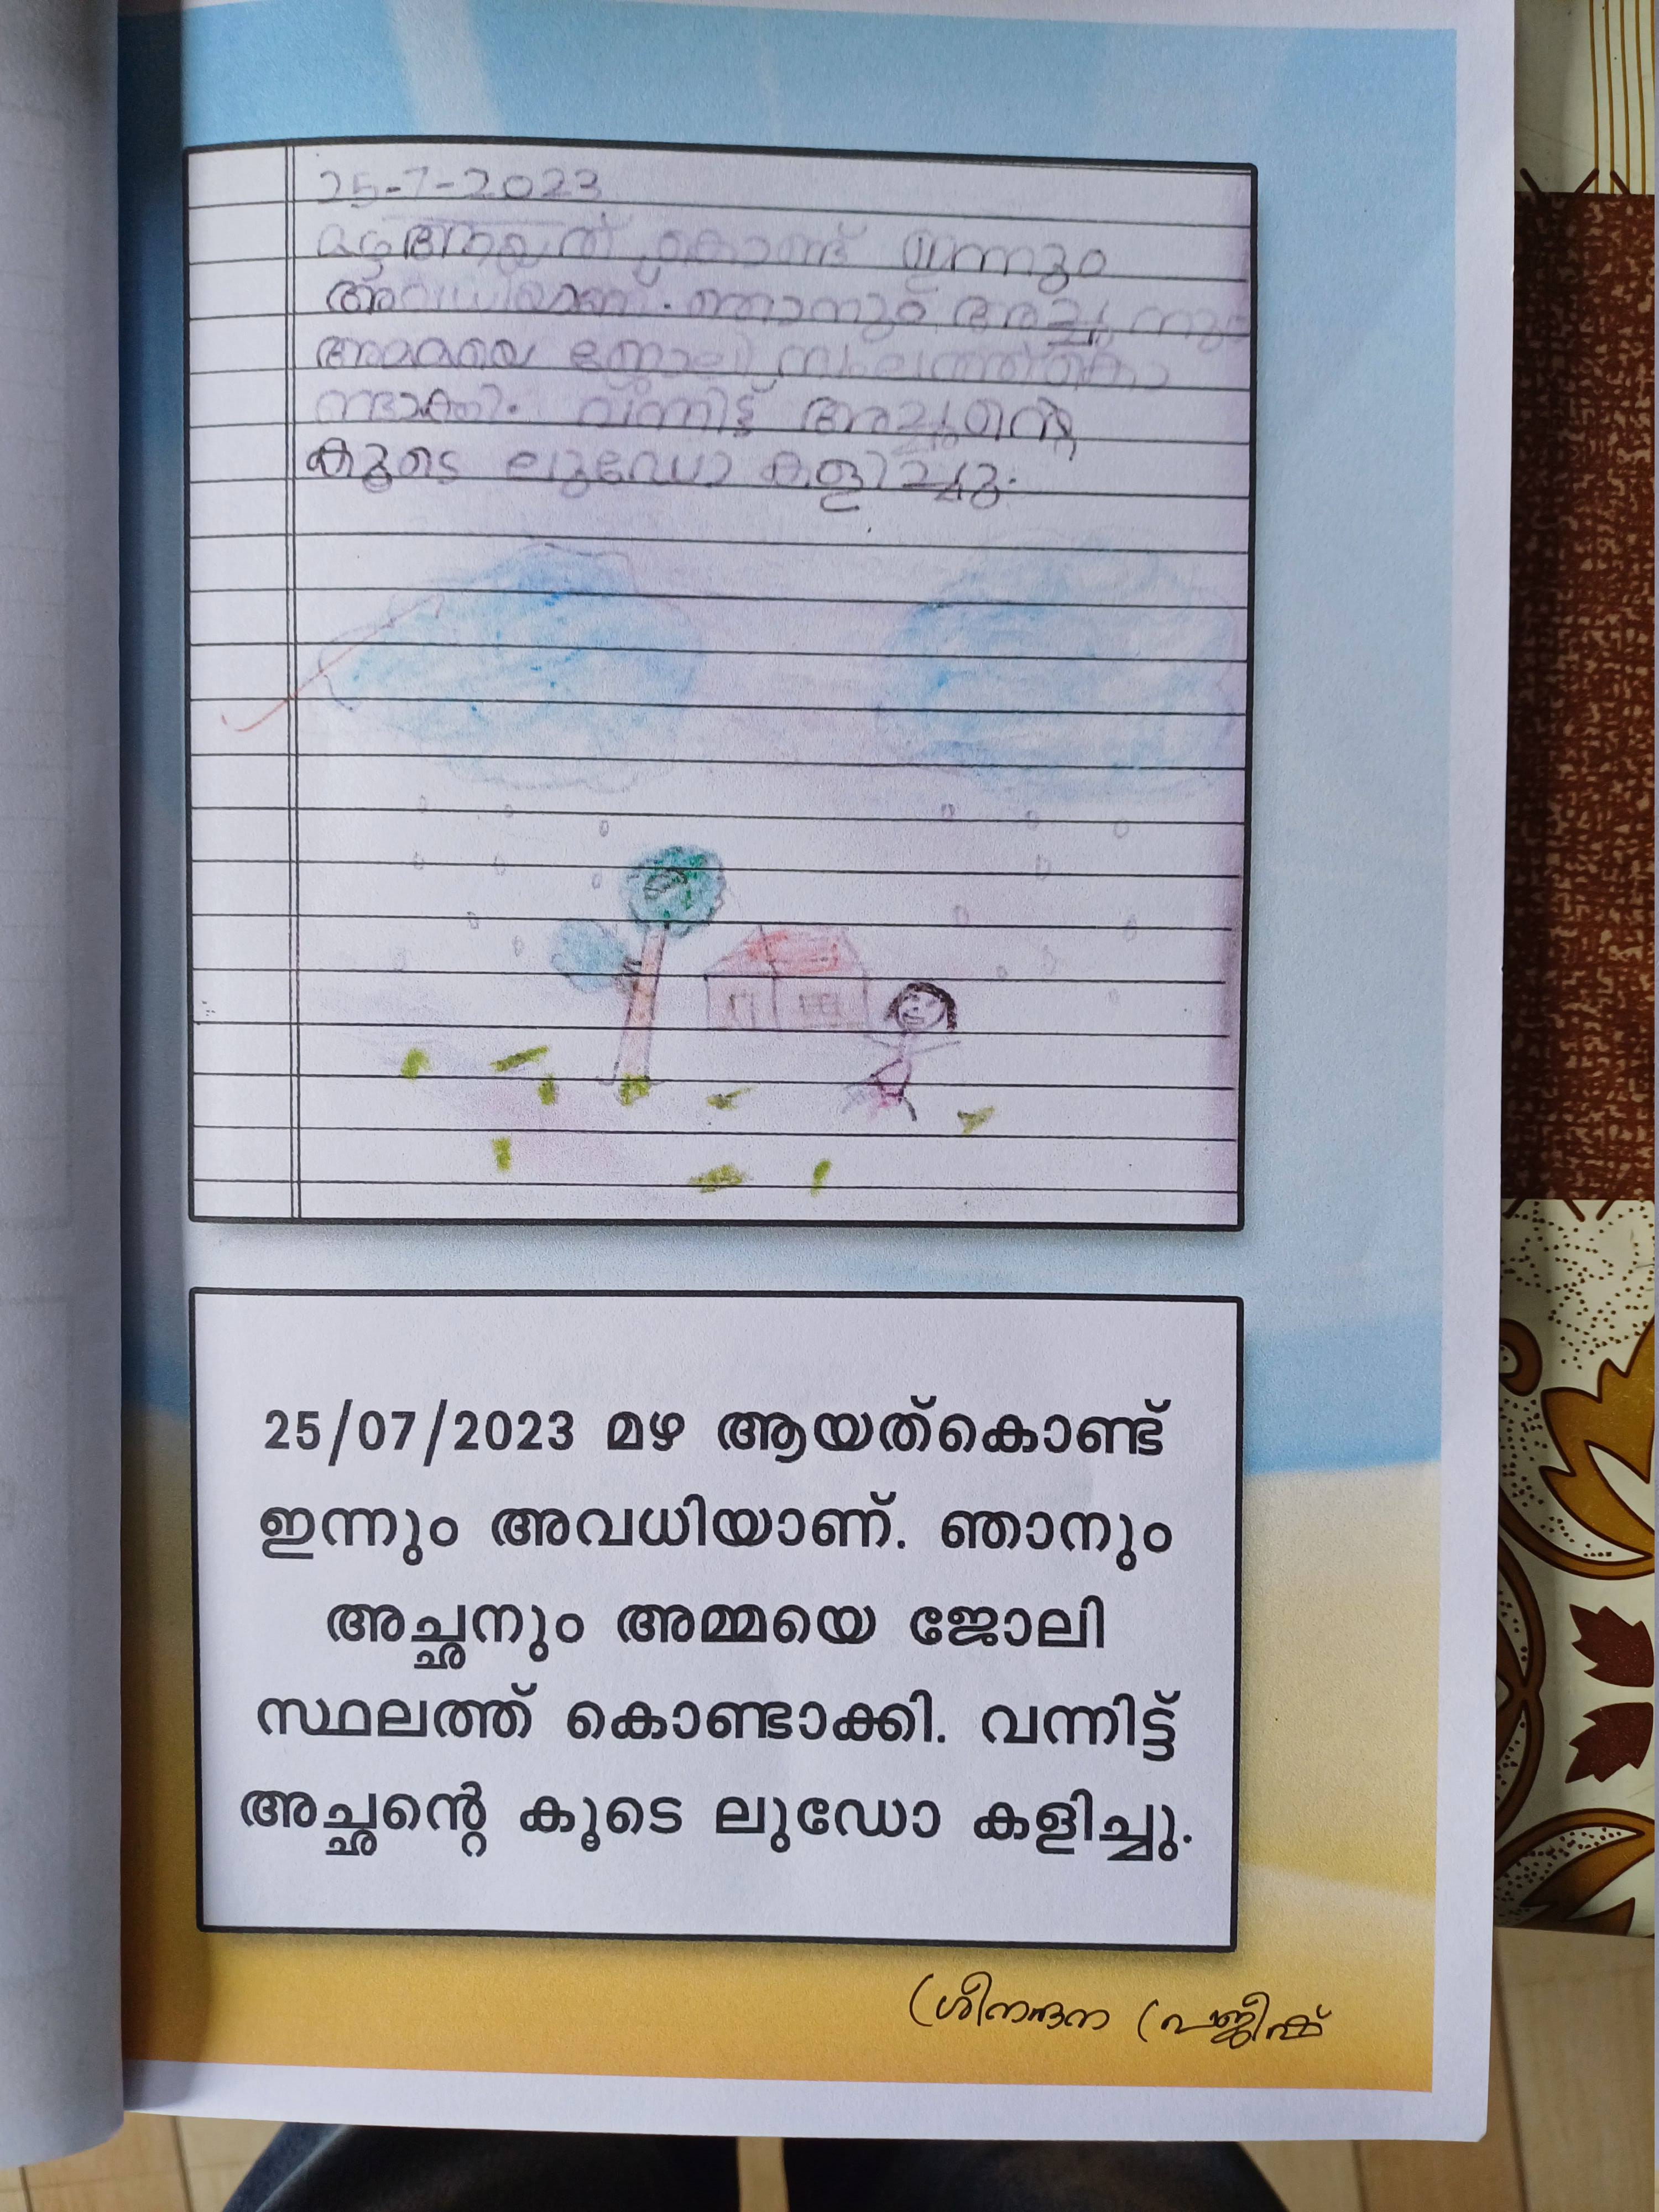 25-7-2023
മഴആയത് കൊണ്ട് ഇന്നും
അവധിയാണ്. ഞാനും അച്ഛനും
അമ്മയെ ജോലി സ്ഥലത്ത്കൊ
ണ്ടാക്കി. വന്നിട്ട് അച്ഛന്റെ
കൂടെ ലുഡോ കളിച്ചു.
25/07/2023 മഴ ആയത്കൊണ്ട്
ഇന്നും അവധിയാണ്. ഞാനും
അച്ഛനും അമ്മയെ ജോലി
സ്ഥലത്ത് കൊണ്ടാക്കി. വന്നിട്ട്
അച്ഛന്റെ കൂടെ ലുഡോ കളിച്ചു.
ശ്രീനന്ദന പ്രജീഷ്